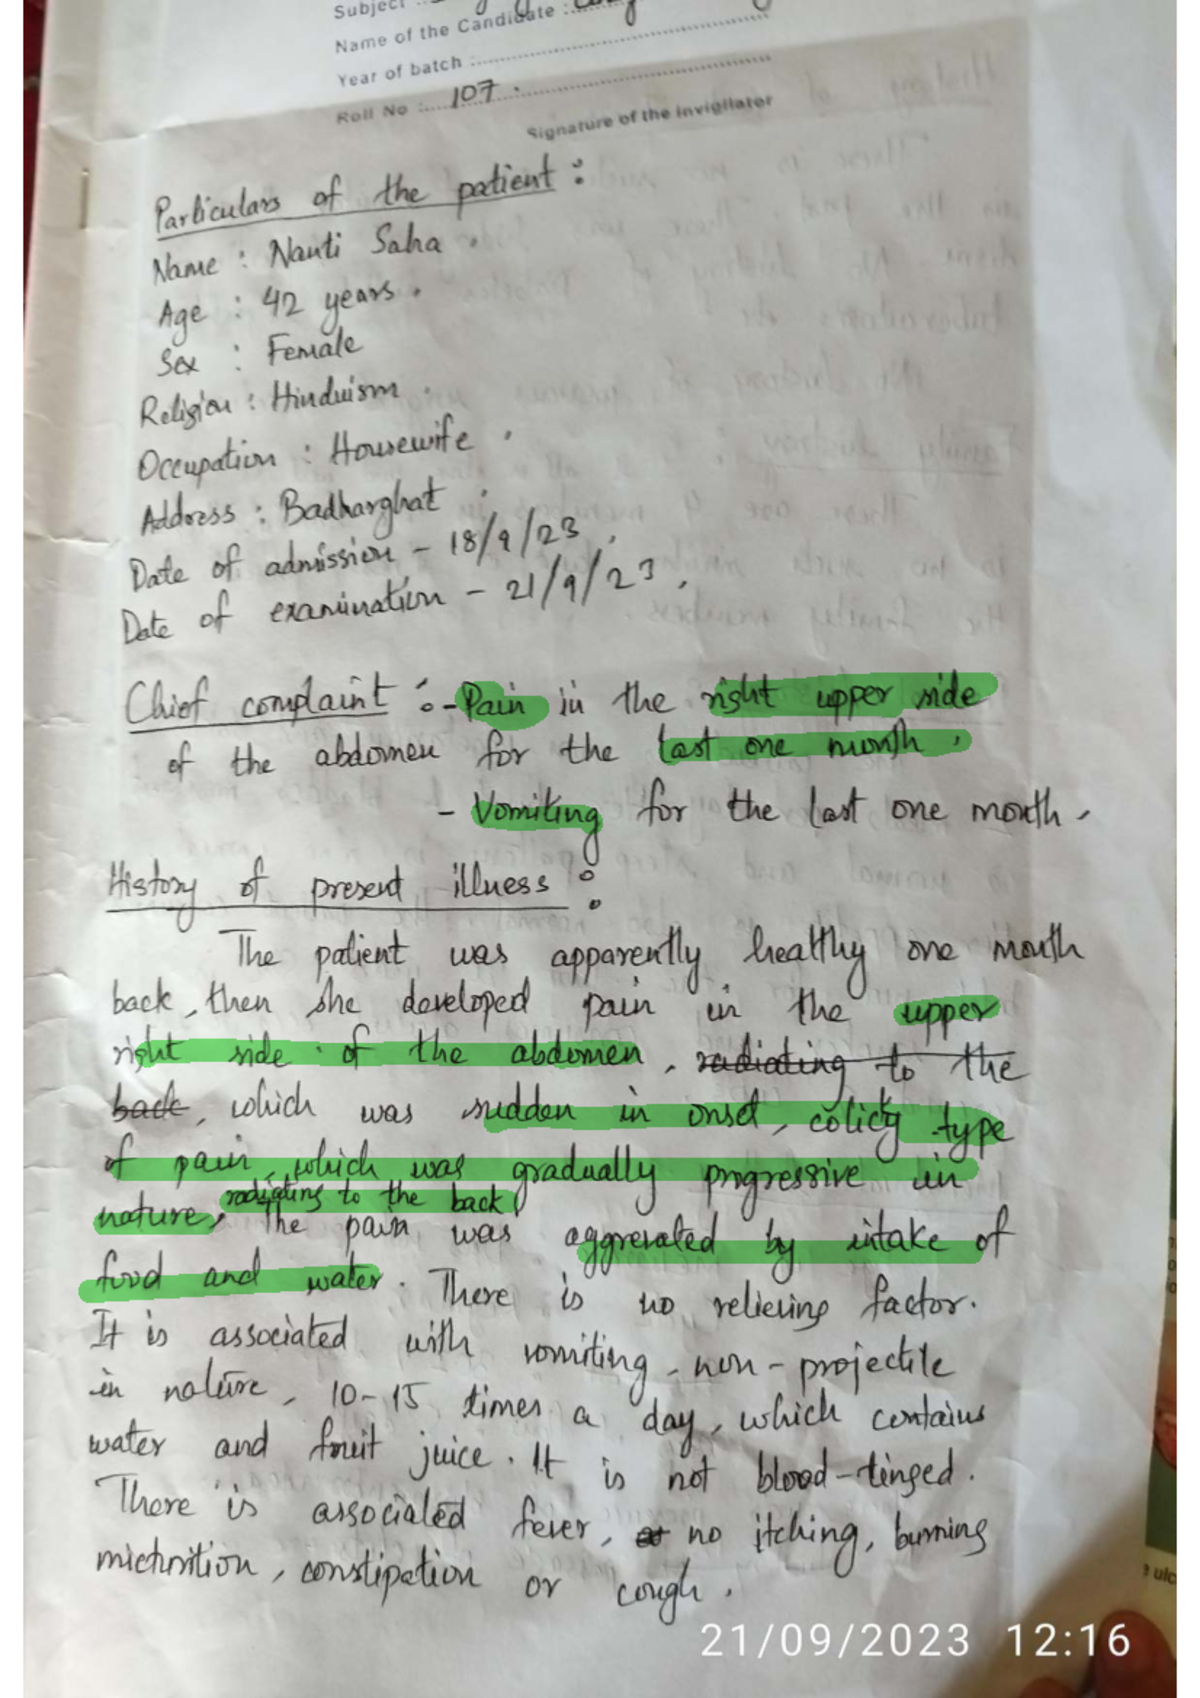 Subject :
Name of the Candidate :
Year of batch :
Roll No : 107 .
Signature of the invigilator
Particulars of the patient :
Name : Nanti Saha .
Age : 42 years .
Sex : Female
Religion : Hinduism .
Occupation : Housewife .
Address : Badharghat .
Date of admission - 18/9/23 .
Date of examination - 21/9/23 .
Chief complaint :- Pain in the right upper side
of the abdomen for the last one month .
- Vomiting for the last one month .
History of present illness :
The patient was apparently healthy one month
back, then she developed pain in the upper
right side of the abdomen , radiating to the
back , which was sudden in onset , colicky type
of pain , which was gradually progressive in
nature, radiating to the back. The pain was aggrevated by intake of
food and water . There is no relieving factor .
It is associated with vomiting , non - projectile
in nature , 10-15 times a day , which contains
water and fruit juice . It is not blood-tinged .
There is associated fever , no itching , burning
micturition , constipation or cough .
21/09/2023 12:16